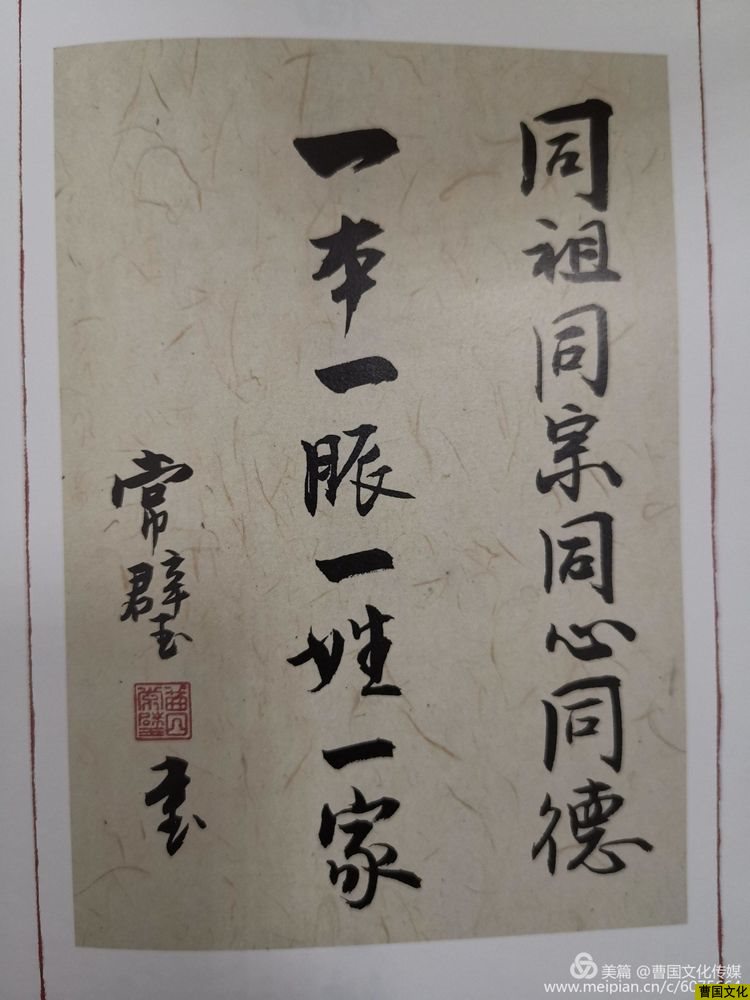 同祖同宗同心同德
一本一脈一姓一家
常璧玉
书
美篇 @曹国文化传媒
www.meipian.cn/c/60
曹国文化